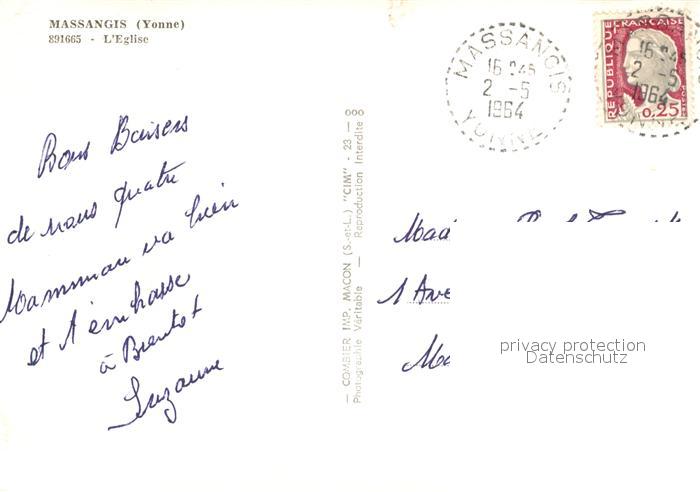 MASSANGIS (Yonne)
891665 - L'Eglise
Bons Baisers
de nous quatre
Mamman va bien
et t'embrasse
à Bientot
Suzanne
— COMBIER IMP. MACON (S.-et-L.) "CIM" - 23 — 000
Photographie Véritable — Reproduction Interdite
MASSANGIS
16 H45
2 - 5
1964
YONNE
REPUBLIQUE FRANÇAISE
0,25
16 H45
2 - 5
1964
1 Ave
privacy protection
Datenschutz